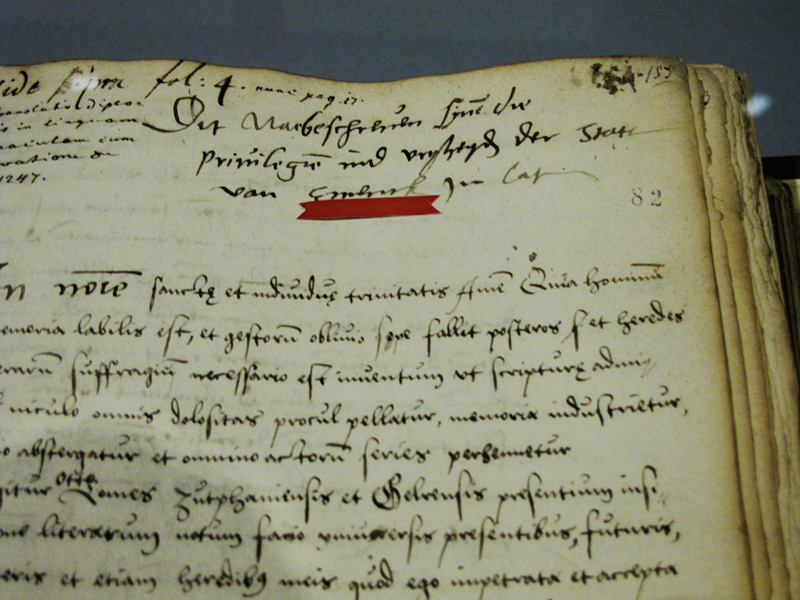 ide supra fol: 4. nunc pag. 17.
158
1247.
Dit Naebeschreuen syne die
priuilegie ind vryheyden der Statt
van Embrick in Lat
82
In nomine sancte et indiuidue trinitatis Amen Quia hominum
emoria labilis est, et gestorum obliuio sepe fallet posteros et heredes
erarum suffragium necessario est inuentum vt scripture admi
niculo omnis dolositas procul pellatur, memoria industrietur,
o abstergatur et omnino actorum series perhennetur
gitur Otto Comes Zutphaniensis et Gelrensis presentium insi
ne literarum notum facio vniuersis presentibus, futuris,
eris et etiam heredibus meis quod ego impetrata et accepta